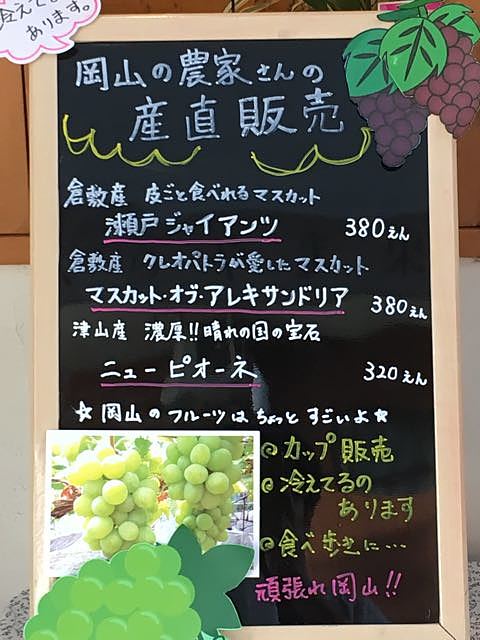 冷えてるの
あります。
岡山の農家さんの
産直販売
倉敷産 皮ごと食べれるマスカット
瀬戸ジャイアンツ 380えん
倉敷産 クレオパトラが愛したマスカット
マスカット・オブ・アレキサンドリア 380えん
津山産 濃厚!!晴れの国の宝石
ニューピオーネ 320えん
☆岡山のフルーツはちょっとすごいよ☆
◎カップ販売
◎冷えてるの
あります
◎食べ歩きに…
頑張れ岡山!!